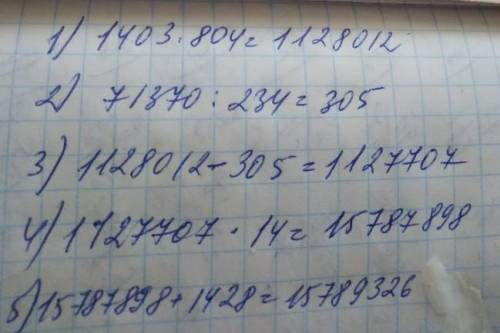 1) 1403 · 804 = 1128012
2) 71370 : 234 = 305
3) 1128012 - 305 = 1127707
4) 1127707 · 14 = 15787898
5) 15787898 + 1428 = 15789326